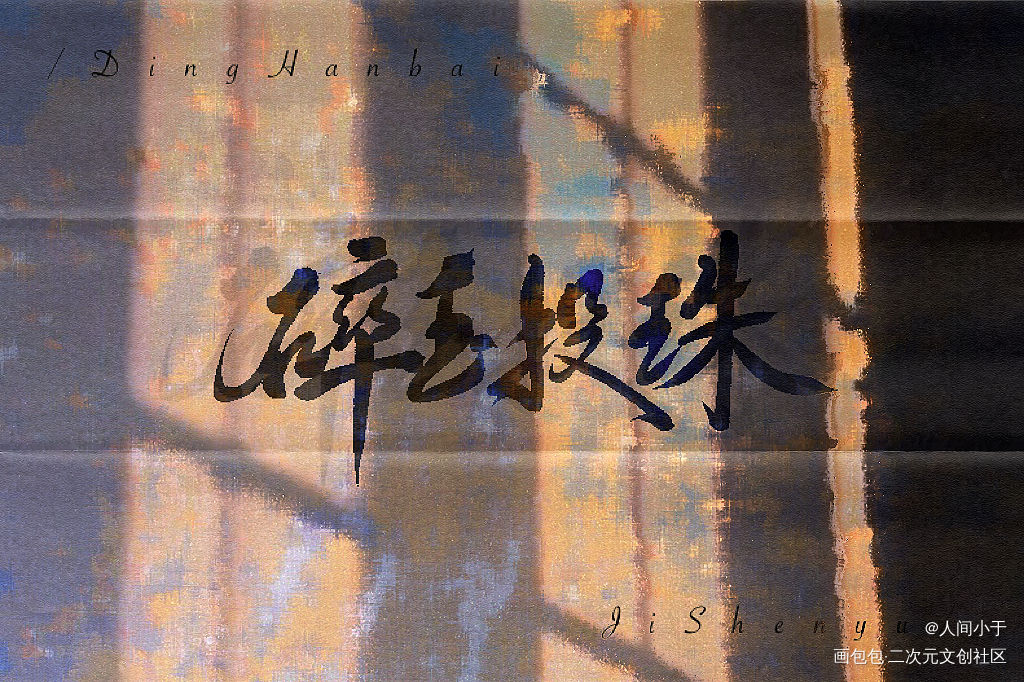 /DingHanbai
碎玉投珠
JiShenyu
@人间小于
画包包·二次元文创社区